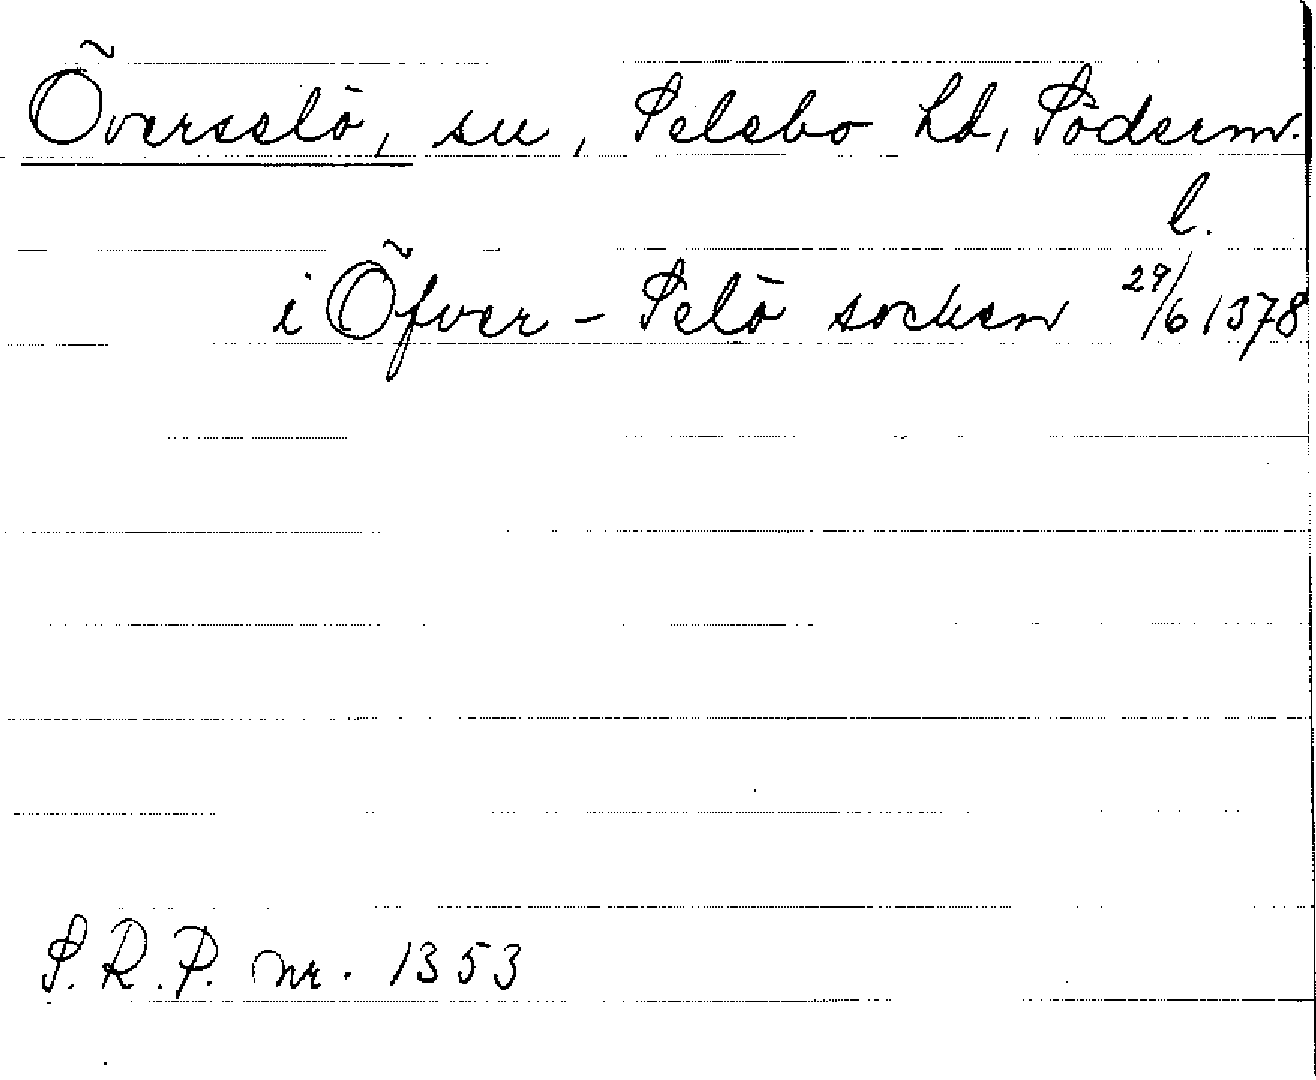 Överselö, sn, Selebo hd, Söderm.
l.
i Öfver-Selö socken 29/6 1378
S.R.P. nr. 1353